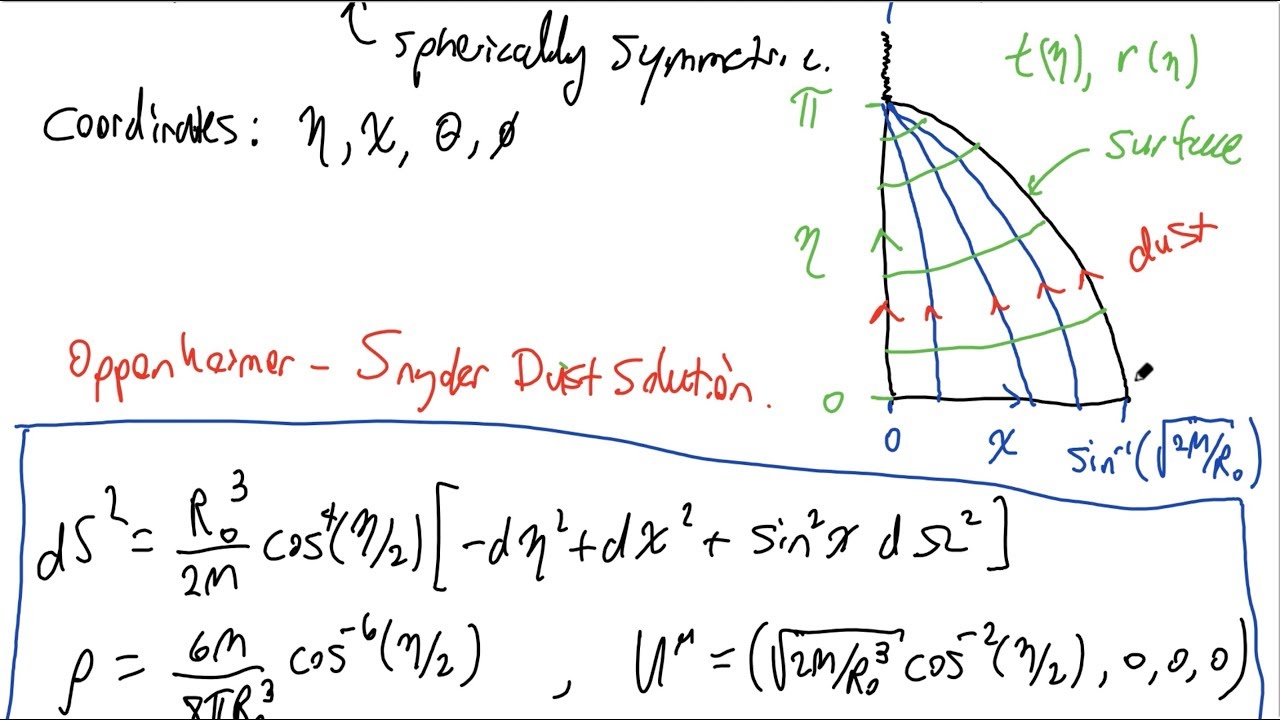 spherically symmetric.
Coordinates: η, χ, θ, φ
t(η), r(η)
π
surface
η
dust
0
0 χ sin⁻¹(√2M/R₀)
Oppenheimer - Snyder Dust Solution.
dS² = R₀³/2M cos⁴(η/2) [-dη² + dχ² + sin²χ dΩ²]
ρ = 6M/8πR₀³ cos⁻⁶(η/2) , U^μ = (√2M/R₀³ cos⁻²(η/2), 0, 0, 0)